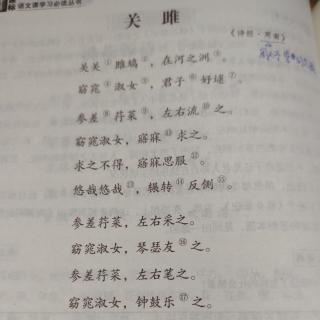 语文课学习必读丛书
关雎
《诗经·周南》
关关①雎鸠②，在河之洲③。
窈窕④淑女⑤，君子⑥好逑⑦。
参差⑧荇菜⑨，左右流⑩之。
窈窕淑女，寤寐⑪求之。
求之不得，寤寐思服⑫。
悠哉悠哉⑬，辗转⑭反侧⑮。
参差荇菜，左右采之。
窈窕淑女，琴瑟友⑯之。
参差荇菜，左右芼之。
窈窕淑女，钟鼓乐⑰之。